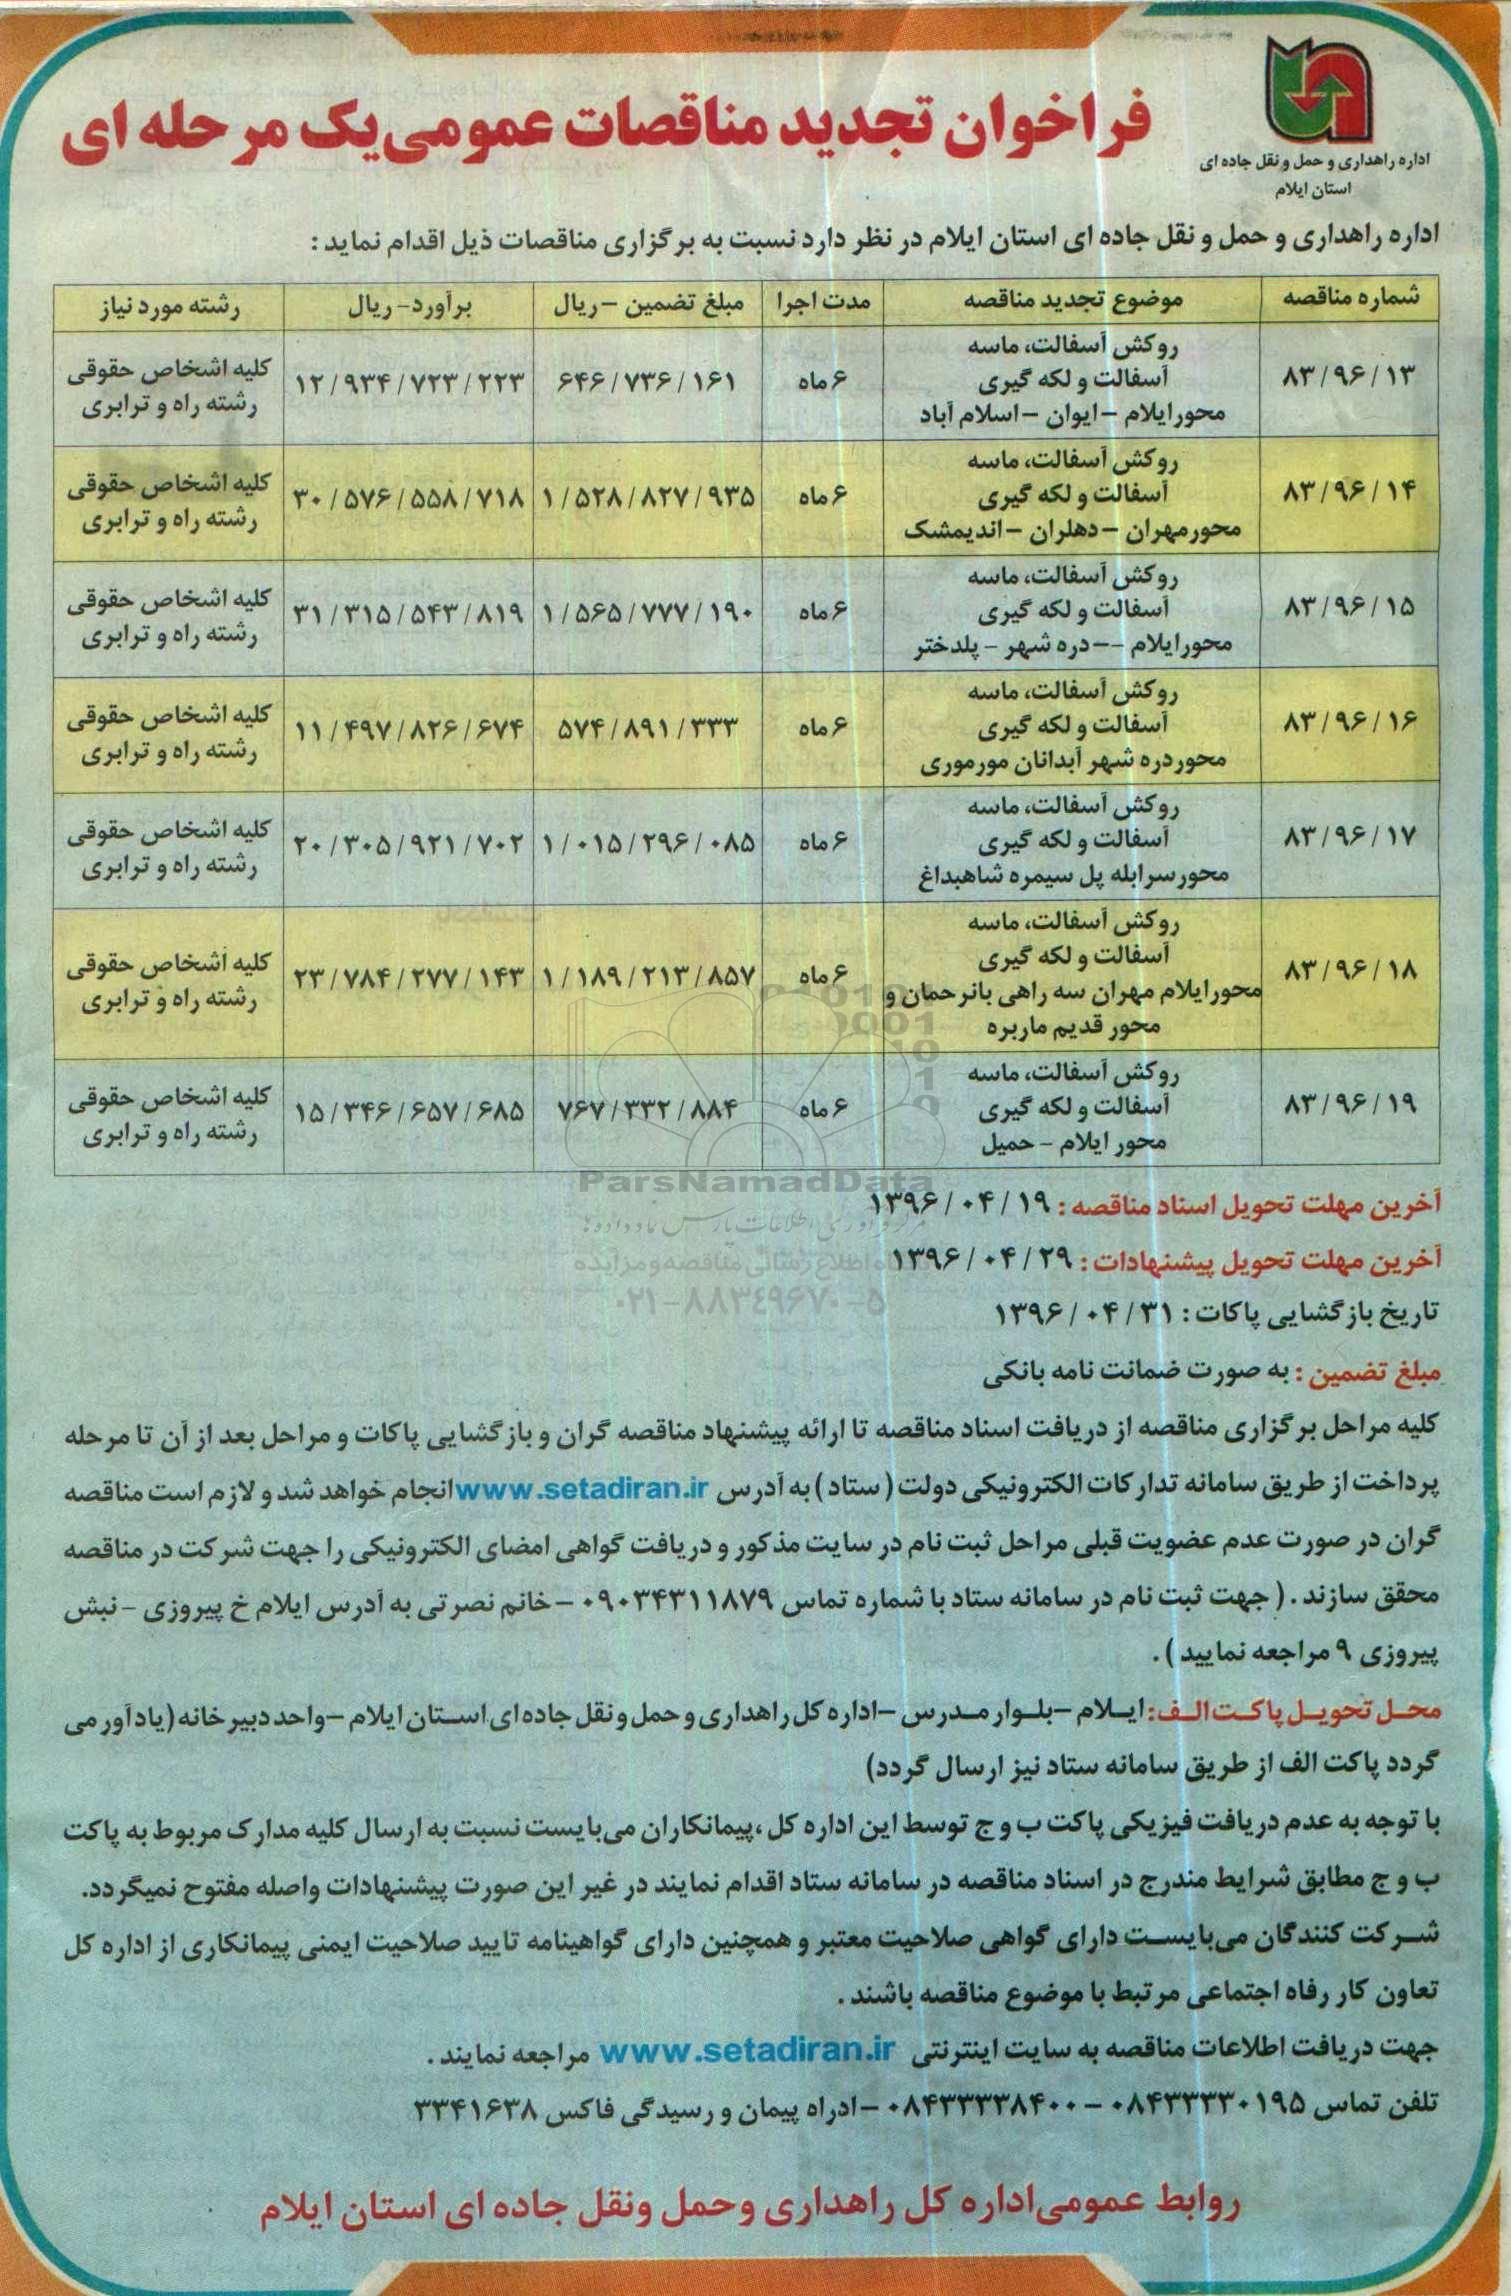 فراخوان تجدید مناقصات عمومی یک مرحله ای
اداره راهداری و حمل و نقل جاده ای
استان ایلام
اداره راهداری و حمل و نقل جاده ای استان ایلام در نظر دارد نسبت به برگزاری مناقصات ذیل اقدام نماید :
شماره مناقصه | موضوع تجدید مناقصه | مدت اجرا | مبلغ تضمین – ریال | برآورد- ریال | رشته مورد نیاز
۸۳/۹۶/۱۳ | روکش آسفالت، ماسه آسفالت و لکه گیری محورایلام – ایوان – اسلام آباد | ۶ ماه | ۶۴۶/۷۳۶/۱۶۱ | ۱۲/۹۳۴/۷۲۳/۲۲۳ | کلیه اشخاص حقوقی رشته راه و ترابری
۸۳/۹۶/۱۴ | روکش آسفالت، ماسه آسفالت و لکه گیری محورمهران – دهلران – اندیمشک | ۶ ماه | ۱/۵۲۸/۸۲۷/۹۳۵ | ۳۰/۵۷۶/۵۵۸/۷۱۸ | کلیه اشخاص حقوقی رشته راه و ترابری
۸۳/۹۶/۱۵ | روکش آسفالت، ماسه آسفالت و لکه گیری محورایلام –- دره شهر - پلدختر | ۶ ماه | ۱/۵۶۵/۷۷۷/۱۹۰ | ۳۱/۳۱۵/۵۴۳/۸۱۹ | کلیه اشخاص حقوقی رشته راه و ترابری
۸۳/۹۶/۱۶ | روکش آسفالت، ماسه آسفالت و لکه گیری محوردره شهر آبدانان مورموری | ۶ ماه | ۵۷۴/۸۹۱/۳۳۳ | ۱۱/۴۹۷/۸۲۶/۶۷۴ | کلیه اشخاص حقوقی رشته راه و ترابری
۸۳/۹۶/۱۷ | روکش آسفالت، ماسه آسفالت و لکه گیری محورسرابله پل سیمره شاهبداغ | ۶ ماه | ۱/۰۱۵/۲۹۶/۰۸۵ | ۲۰/۳۰۵/۹۲۱/۷۰۲ | کلیه اشخاص حقوقی رشته راه و ترابری
۸۳/۹۶/۱۸ | روکش آسفالت، ماسه آسفالت و لکه گیری محورایلام مهران سه راهی بانرحمان و محور قدیم ماربره | ۶ ماه | ۱/۱۸۹/۲۱۳/۸۵۷ | ۲۳/۷۸۴/۲۷۷/۱۴۳ | کلیه اشخاص حقوقی رشته راه و ترابری
۸۳/۹۶/۱۹ | روکش آسفالت، ماسه آسفالت و لکه گیری محور ایلام - حمیل | ۶ ماه | ۷۶۷/۳۳۲/۸۸۴ | ۱۵/۳۴۶/۶۵۷/۶۸۵ | کلیه اشخاص حقوقی رشته راه و ترابری
ParsNamadData
آخرین مهلت تحویل اسناد مناقصه : ۱۳۹۶/۰۴/۱۹
آخرین مهلت تحویل پیشنهادات : ۱۳۹۶/۰۴/۲۹
پایگاه اطلاع رسانی مناقصه و مزایده
۰۲۱-۸۸۳۴۹۶۷۰-۵
تاریخ بازگشایی پاکات : ۱۳۹۶/۰۴/۳۱
مبلغ تضمین : به صورت ضمانت نامه بانکی
کلیه مراحل برگزاری مناقصه از دریافت اسناد مناقصه تا ارائه پیشنهاد مناقصه گران و بازگشایی پاکات و مراحل بعد از آن تا مرحله
پرداخت از طریق سامانه تدارکات الکترونیکی دولت ( ستاد ) به آدرس www.setadiran.ir انجام خواهد شد و لازم است مناقصه
گران در صورت عدم عضویت قبلی مراحل ثبت نام در سایت مذکور و دریافت گواهی امضای الکترونیکی را جهت شرکت در مناقصه
محقق سازند . ( جهت ثبت نام در سامانه ستاد با شماره تماس ۰۹۰۳۴۳۱۱۸۷۹ – خانم نصرتی به آدرس ایلام خ پیروزی - نبش
پیروزی ۹ مراجعه نمایید ) .
محل تحویل پاکت الف: ایلام – بلوار مدرس – اداره کل راهداری و حمل و نقل جاده ای استان ایلام – واحد دبیرخانه (یادآور می
گردد پاکت الف از طریق سامانه ستاد نیز ارسال گردد)
با توجه به عدم دریافت فیزیکی پاکت ب و ج توسط این اداره کل ،پیمانکاران می بایست نسبت به ارسال کلیه مدارک مربوط به پاکت
ب و ج مطابق شرایط مندرج در اسناد مناقصه در سامانه ستاد اقدام نمایند در غیر این صورت پیشنهادات واصله مفتوح نمیگردد.
شرکت کنندگان می بایست دارای گواهی صلاحیت معتبر و همچنین دارای گواهینامه تایید صلاحیت ایمنی پیمانکاری از اداره کل
تعاون کار رفاه اجتماعی مرتبط با موضوع مناقصه باشند .
جهت دریافت اطلاعات مناقصه به سایت اینترنتی www.setadiran.ir مراجعه نمایند .
تلفن تماس ۰۸۴۳۳۳۳۰۱۹۵ - ۰۸۴۳۳۳۳۸۴۰۰ – ادراه پیمان و رسیدگی فاکس ۳۳۴۱۶۳۸
روابط عمومی اداره کل راهداری وحمل ونقل جاده ای استان ایلام